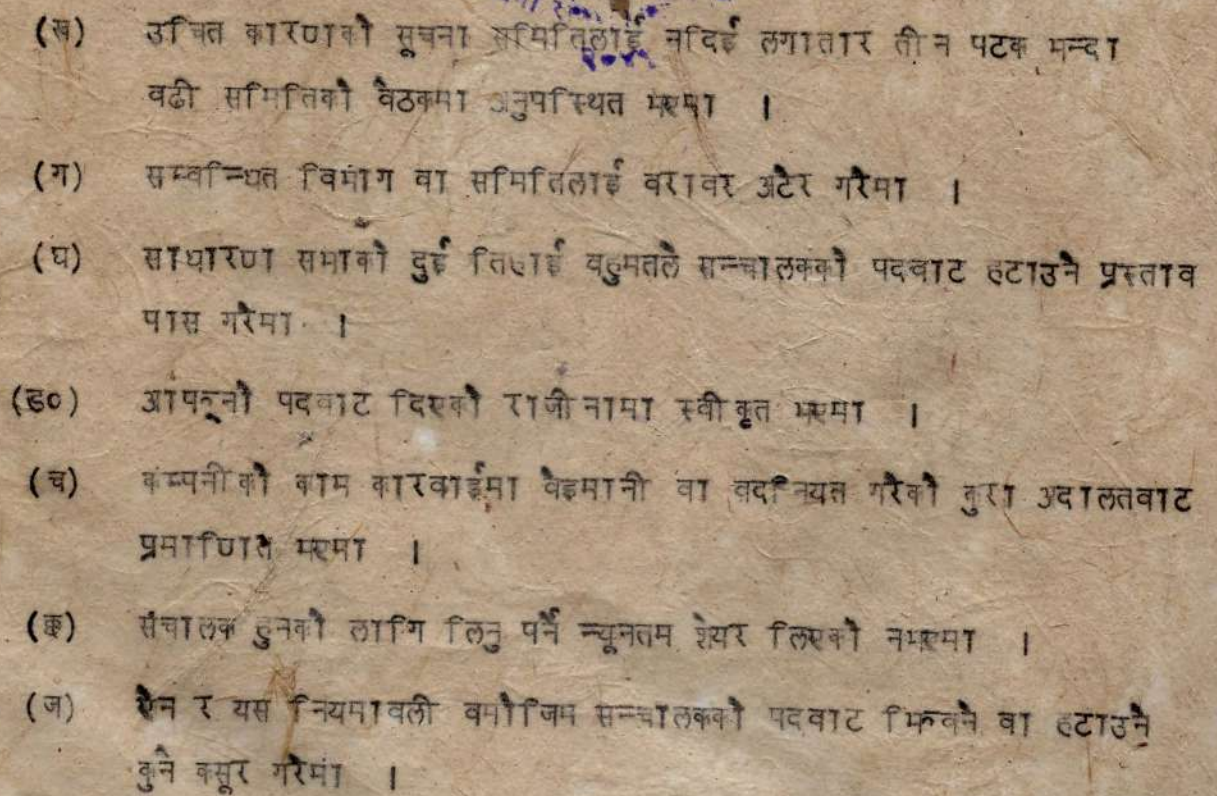 (ख) उचित कारणको सूचना समितिलाई नदिई लगातार तीन पटक भन्दा
वढी समितिको वैठकमा अनुपस्थित भएमा ।
(ग) सम्वन्धित विभाग वा समितिलाई वरावर अटेर गरेमा ।
(घ) साधारण सभाको दुई तिहाई वहुमतले सन्चालकको पदवाट हटाउने प्रस्ताव
पास गरेमा ।
(ङ) आफ्नो पदवाट दिएको राजीनामा स्वीकृत भएमा ।
(च) कम्पनीको काम कारवाईमा वेइमानी वा वदनियत गरेको कुरा अदालतवाट
प्रमाणित भएमा ।
(छ) संचालक हुनको लागि लिनु पर्ने न्यूनतम शेयर लिएको नभएमा ।
(ज) ऐन र यस नियमावली वमोजिम सन्चालकको पदवाट झिक्ने वा हटाउने
कुनै कसूर गरेमा ।